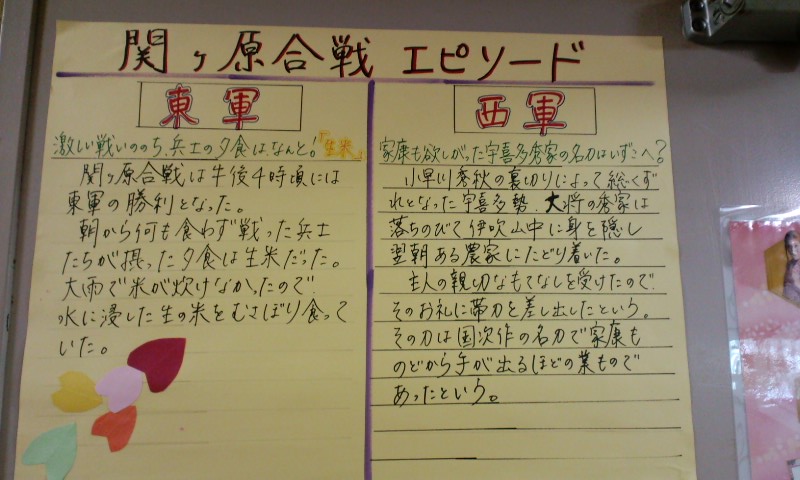 関ヶ原合戦 エピソード
東軍
激しい戦いののち、兵士の夕食は、なんと。「生米」
関ヶ原合戦は午後4時頃には
東軍の勝利となった。
朝から何も食わず戦った兵士
たちが摂った夕食は生米だった。
大雨で米が炊けなかったので
水に浸した生の米をむさぼり食って
いた。
西軍
家康も欲しがった宇喜多秀家の名刀はいずこへ?
小早川秀秋の裏切りによって総くず
れとなった宇喜多勢、大将の秀家は
落ちのびて伊吹山中に身を隠し
翌朝ある農家にたどり着いた。
主人の親切なもてなしを受けたので、
そのお礼に帯刀を差し出したという。
その刀は国次作の名刀で家康も
のどから手が出るほどの業もので
あったという。